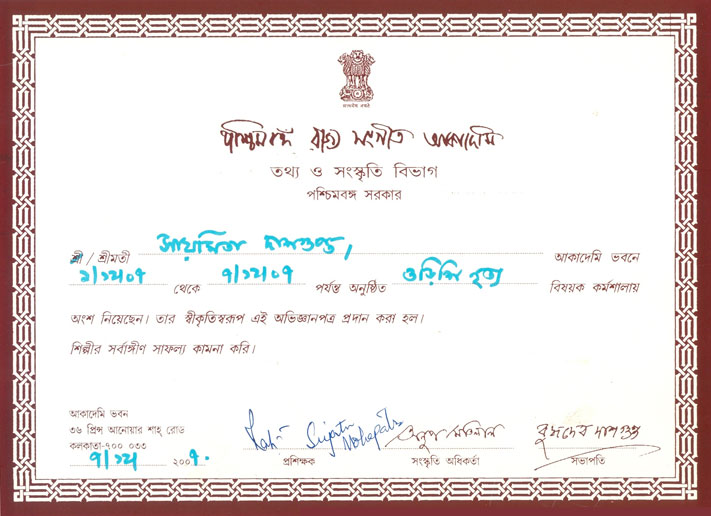 পশ্চিমবঙ্গ রাজ্য সংগীত আকাদেমি
তথ্য ও সংস্কৃতি বিভাগ
পশ্চিমবঙ্গ সরকার
শ্রী / শ্রীমতী সায়মিতা দাশগুপ্ত, আকাদেমি ভবনে
১/১২/০৭ থেকে ৭/১২/০৭ পর্যন্ত অনুষ্ঠিত ওড়িশি নৃত্য বিষয়ক কর্মশালায়
অংশ নিয়েছেন। তার স্বীকৃতিস্বরূপ এই অভিজ্ঞানপত্র প্রদান করা হল।
শিল্পীর সর্বাঙ্গীণ সাফল্য কামনা করি।
আকাদেমি ভবন
৩৬ প্রিন্স আনোয়ার শাহ্ রোড
কলকাতা-৭০০ ০৩৩
৭/১২/ ২০০৭. Sujata Mohapatra বুদ্ধদেব দাশগুপ্ত
প্রশিক্ষক সংস্কৃতি অধিকর্তা সভাপতি